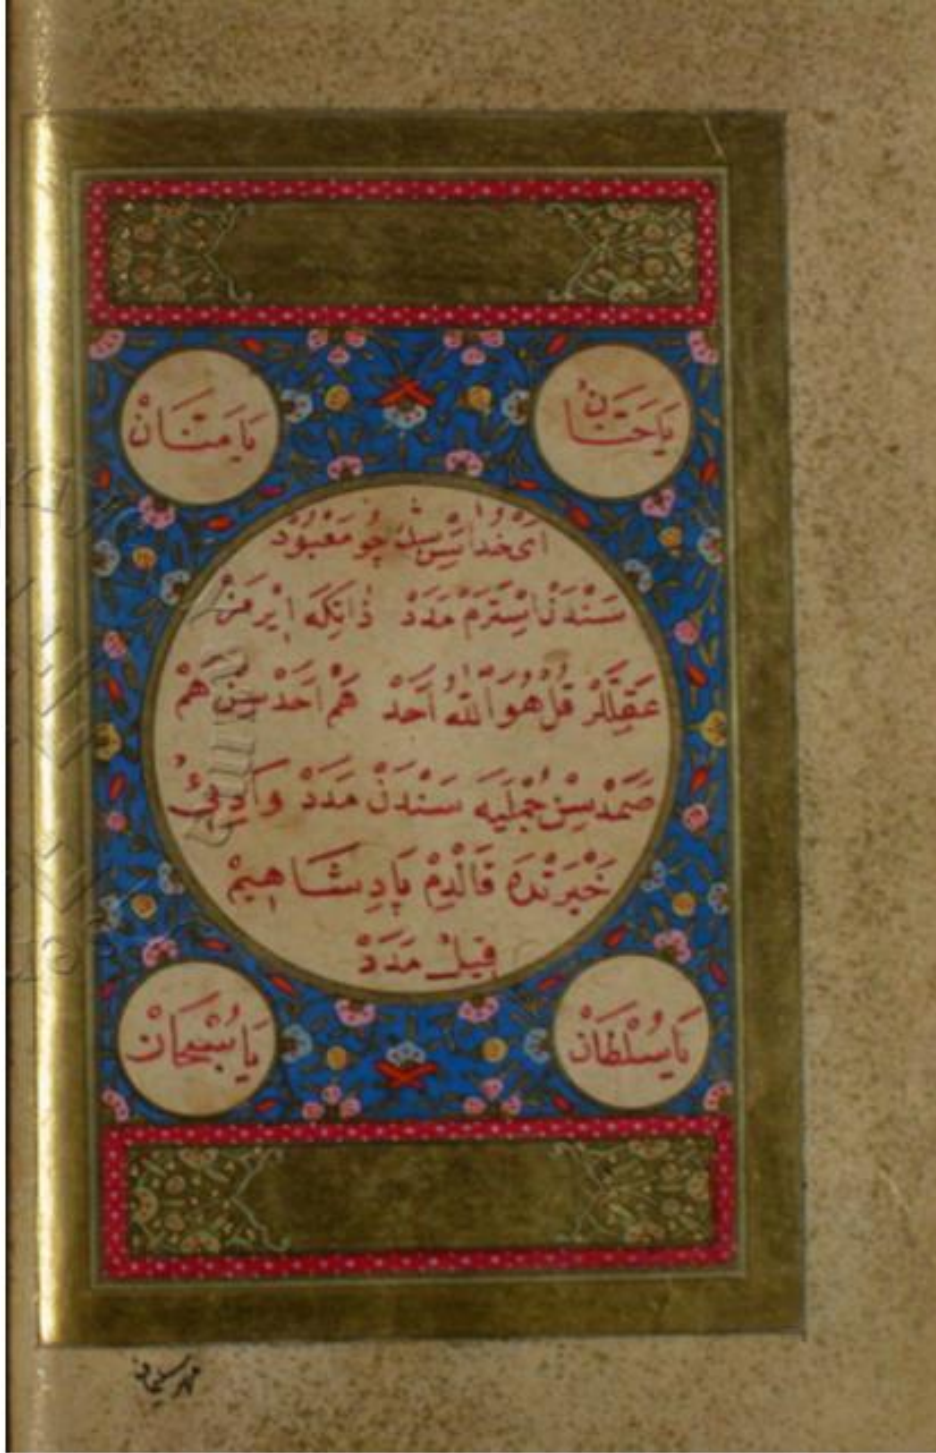 يَا حَنَّانُ
يَا مَنَّانْ
اَىْ خُدَا سِنْ سِنْ چُو مَعْبُودْ
سَنْدَنْ اِسْتَرَمْ مَدَدْ ذَاتِكَه اِيْرمَزْ
عَقِلَّلرْ قُلْ هُوَ اللّٰهُ اَحَدْ هَمْ اَحَدْسِنْ هَمْ
صَمَدْسِنْ جُمْلَيَه سَنْدَنْ مَدَدْ وَادِئِ
حَيْرَتْدَه قَالْدِمْ پَادِشَاهِيمْ
قِيلْ مَدَدْ
يَا سُلْطَانْ
يَا سُبْحَانْ